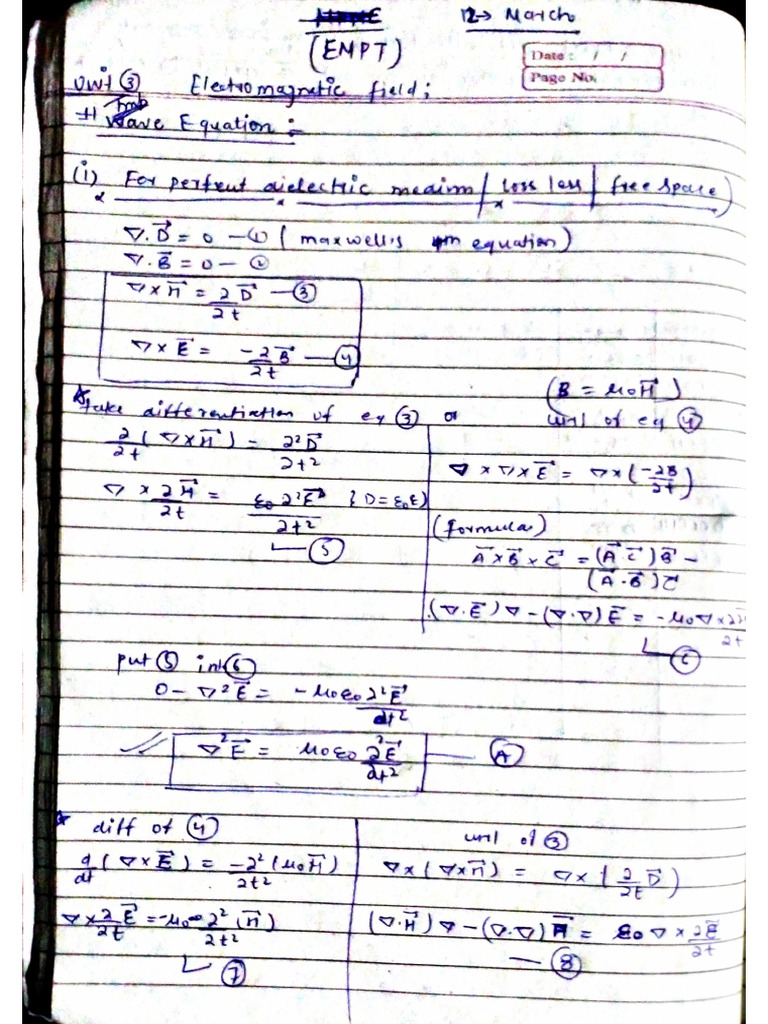 12→ March
(EMPT)
Date: / /
Page No:
Unit ③ Electromagnetic field;
Wave Equation :-
(i) For perfrect dielectric medium / loss less / free space)
∇.D⃗ = 0 — ① ( maxwell's equation)
∇.B⃗ = 0 — ②
∇×H⃗ = ∂D⃗/∂t — ③
∇×E⃗ = -∂B⃗/∂t — ④
(B = μ0H⃗)
take differentiation of eq ③ or curl of eq ④
∂/∂t (∇×H⃗) = ∂²D⃗/∂t²
∇ × ∂H⃗/∂t = ε0 ∂²E⃗/∂t² {D = ε0E} — ⑤
∇ × ∇ × E⃗ = ∇ × (-∂B/∂t)
(formula)
A⃗ × B⃗ × C⃗ = (A⃗ C⃗) B⃗ -
(A⃗ . B⃗) C⃗
(∇.E⃗)∇ - (∇.∇) E⃗ = -μ0 ∇ × ∂H/∂t
— ⑥
put ⑤ in ⑥
0 - ∇²E⃗ = -μ0ε0 ∂²E⃗/dt²
∇²E⃗ = μ0ε0 ∂²E⃗/dt² — Ⓐ
* diff of ④
d/dt (∇×E⃗) = -∂²(μ0H⃗)/∂t²
∇×∂E⃗/∂t = -μ0 ∂²(H⃗)/∂t²
— ⑦
curl of ③
∇×(∇×H⃗) = ∇×(∂/∂t D⃗)
(∇.H⃗)∇ - (∇.∇)H⃗ = ε0 ∇ × ∂E⃗/∂t
— ⑧